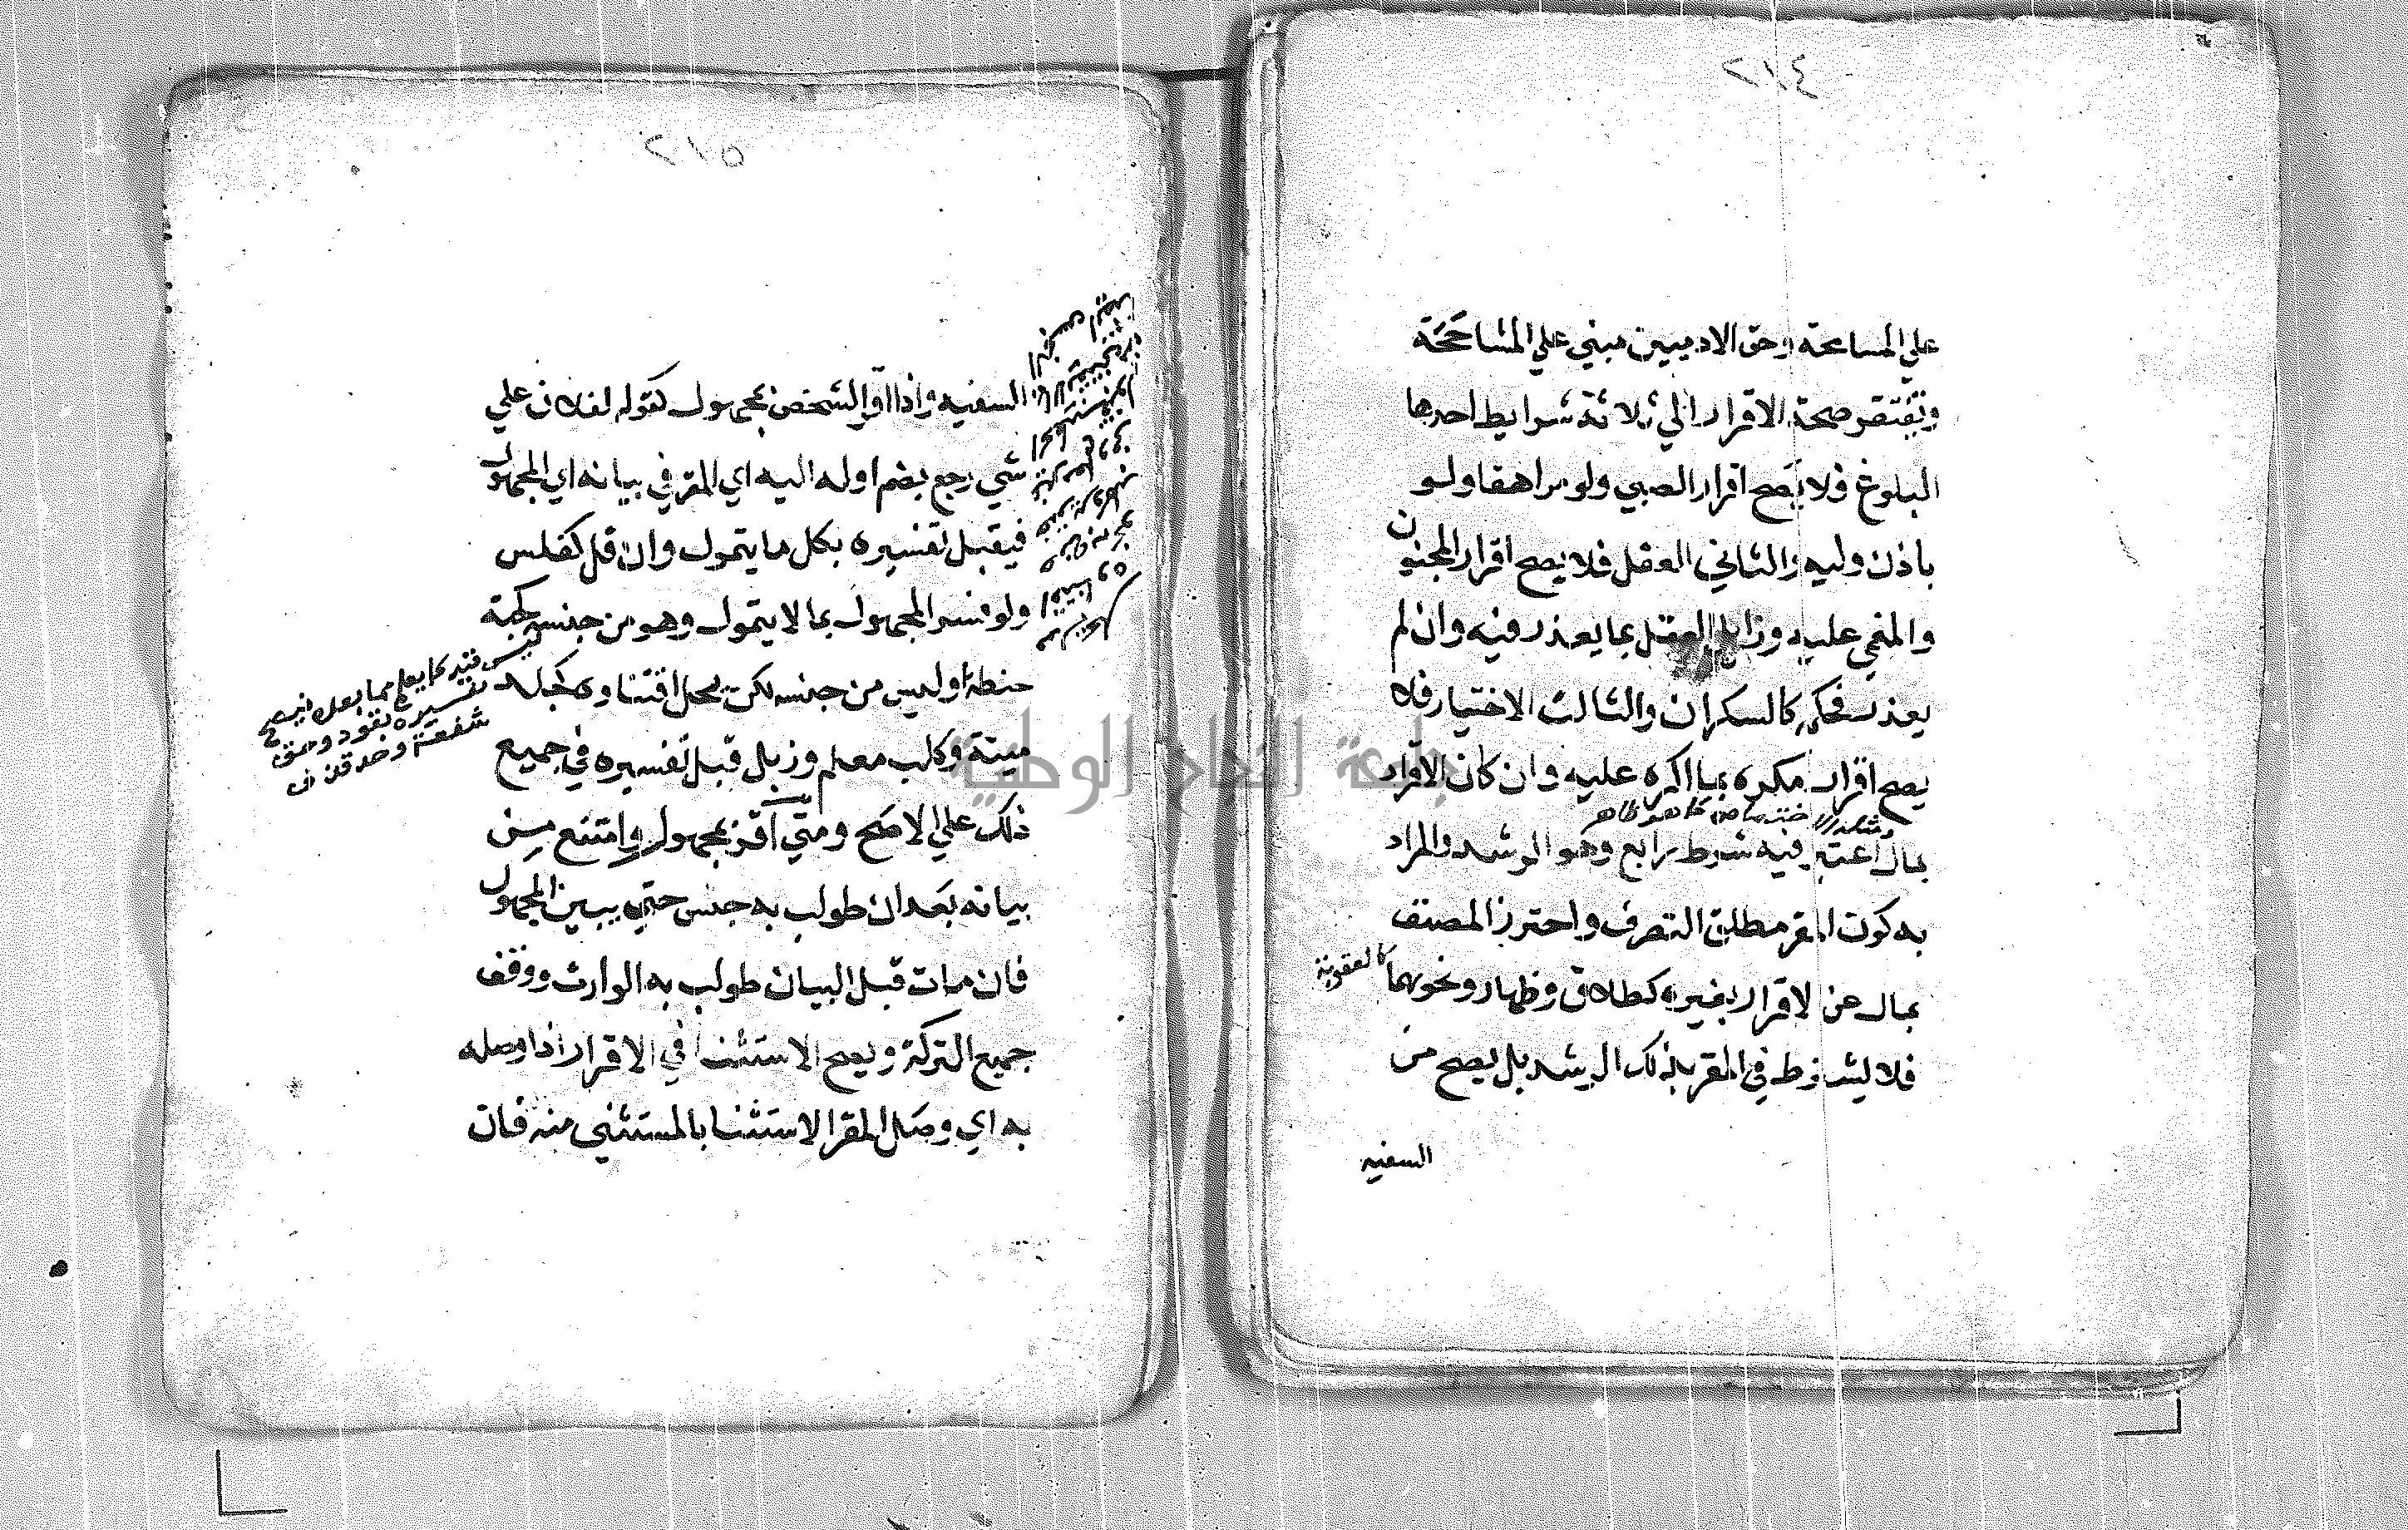 ٤١٢
علي المسامحة وحق الادميين مبني علي المشاححة
وتفتقر صحة الاقرار الي ثلاثة شرايط احدها
البلوغ فلا يصح اقرار الصبي ولو مراهقا ولو
باذن وليه والثاني العقل فلا يصح اقرار المجنون
والمغمي عليه وزايل العقل بما يعذر فيه وان لم
يعذر فحكمه كالسكران والثالث الاختيار فلا
يصح اقرار مكره بما اكره عليه وان كان الاقرار
كما هو ظاهر
بمال اعتبر فيه شرط رابع وهو الرشد والمراد
به كون المقر مطلق التصرف واحترز المصنف
بمال عن الاقرار بغيره كطلاق وظهار ونحوهما كالعقوبة
فلا يشترط في المقر بذلك الرشد بل يصح من
السفيه
٥١٢
السفيه واذا اقر الشخص بمجهول كقوله لفلان علي
شي رجع بضم اوله اليه اي المقر في بيانه اي المجهول
فيقبل تفسيره بكل ما يتمول وان قل كفلس
ولو فسر المجهول بما لا يتمول وهو من جنسه كحبة
حنطة او ليس من جنسه لكن يحل اقتناوه كجلد
ميتة وكلب معلم وزبل قبل تفسيره في جميع
ذلك علي الاصح ومتي اقر بمجهول وامتنع من
بيانه بعد ان طولب به حبس حتي يبين المجهول
فان مات قبل البيان طولب به الوارث ووقف
جميع التركة ويصح الاستثنا في الاقرار اذا وصله
به اي وصل المقر الاستثنا بالمستثني منه فان